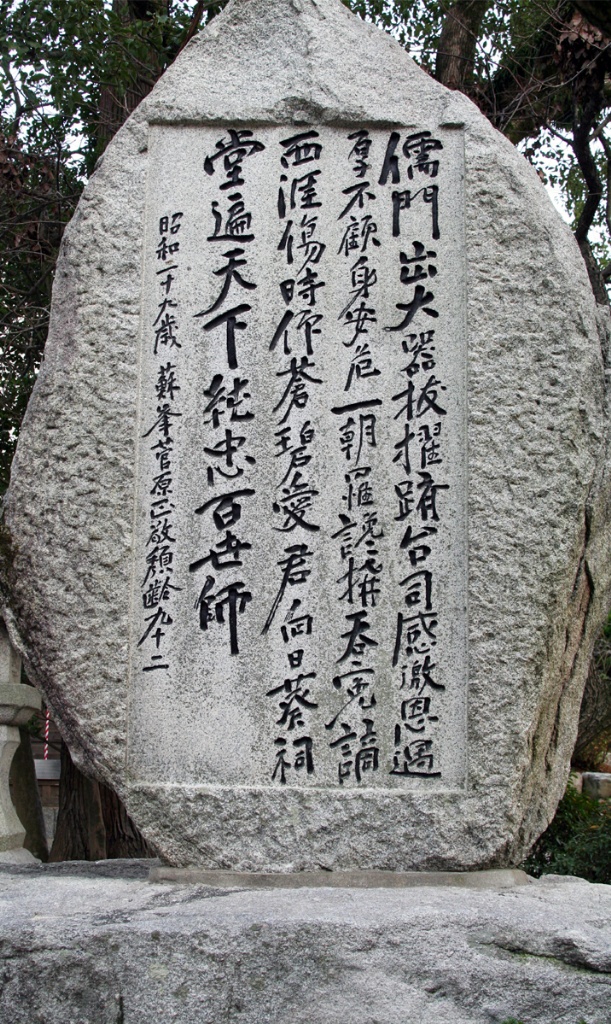 儒門出大器抜擢躋台司感激恩遇
厚不顧身安危一朝罹讒搆呑寃謫
西涯傷時仰蒼碧愛君向日葵祠
堂遍天下純忠百世師
昭和二十九歳 蘇峯菅原正敬頽齢九十二